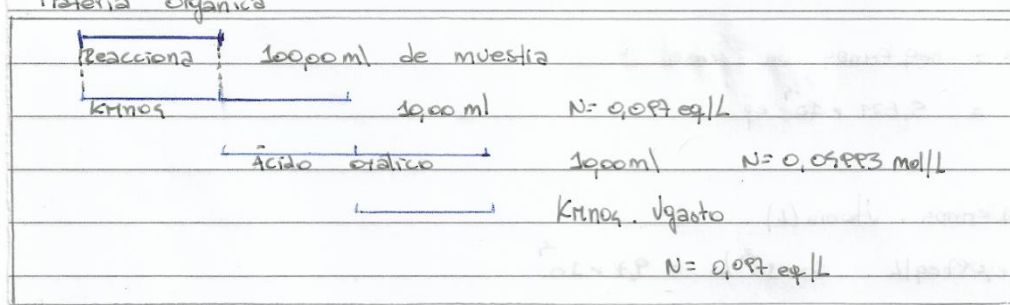 Materia Orgánica
Reacciona 100,00 ml de muestra
KMnO4 10,00 ml N= 0,097 eq/L
Ácido oxálico 10,00ml N= mol/L
KMnO4 . Vgasto
N= 0,097 eq/L